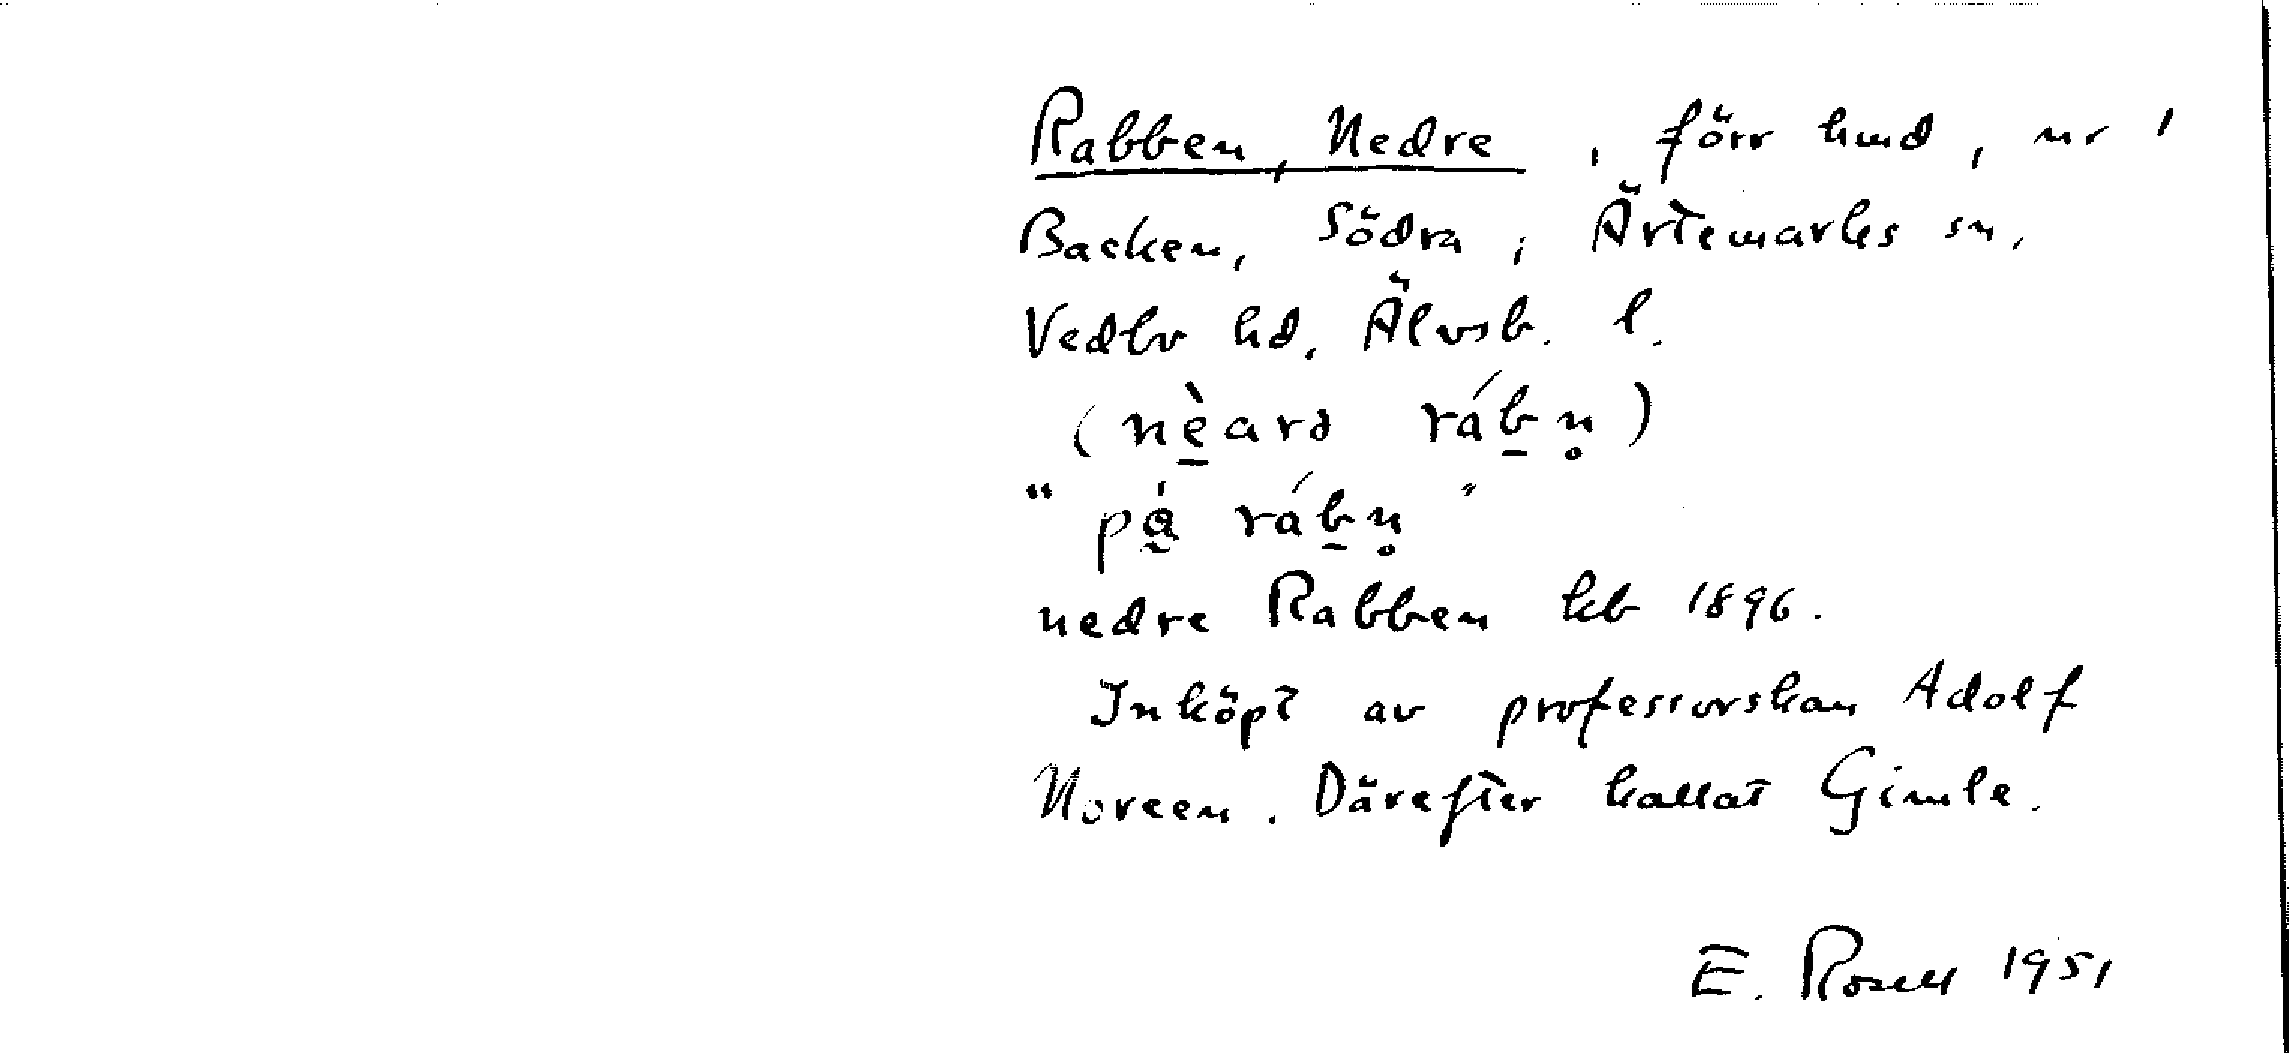 Rabben, Nedre, förr hmd, nr 1
Backen, Södra, Ärtemarks sn,
Vedbo hd. Älvsb. l.
(nèarə rábn̥)
"på rábn̥"
nedre Rabben kb 1896.
Inköpt av professorskan Adolf
Noreen. Därefter kallat Gimle.
E. Rosell 1951